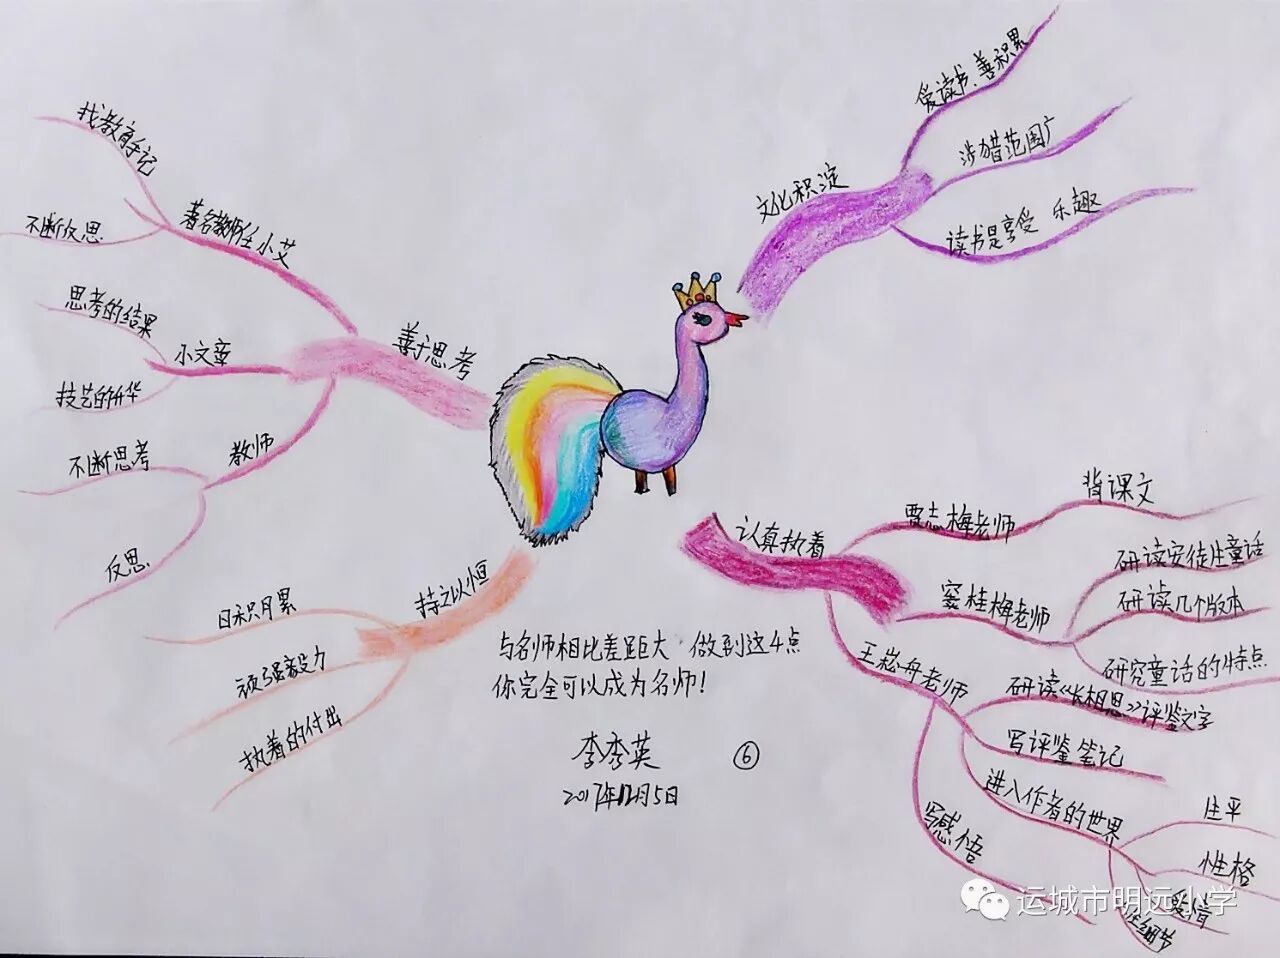 文化积淀
爱读书、善积累
涉猎范围广
读书是享受 乐趣
认真执着
贾志梅老师
背课文
窦桂梅老师
研读安徒生童话
研读几个版本
研究童话的特点
王崧舟老师
研读《长相思》评鉴文字
写评鉴笔记
进入作者的世界
生平
性格
爱情
写感悟
持之以恒
日积月累
顽强毅力
执着的付出
善于思考
著名教师任小艾
找教育手记
不断反思
小文章
思考的结果
技艺的升华
教师
不断思考
反思
与名师相比差距大 做到这4点
你完全可以成为名师!
李秀英
⑥
2017年12月5日
运城市明远小学